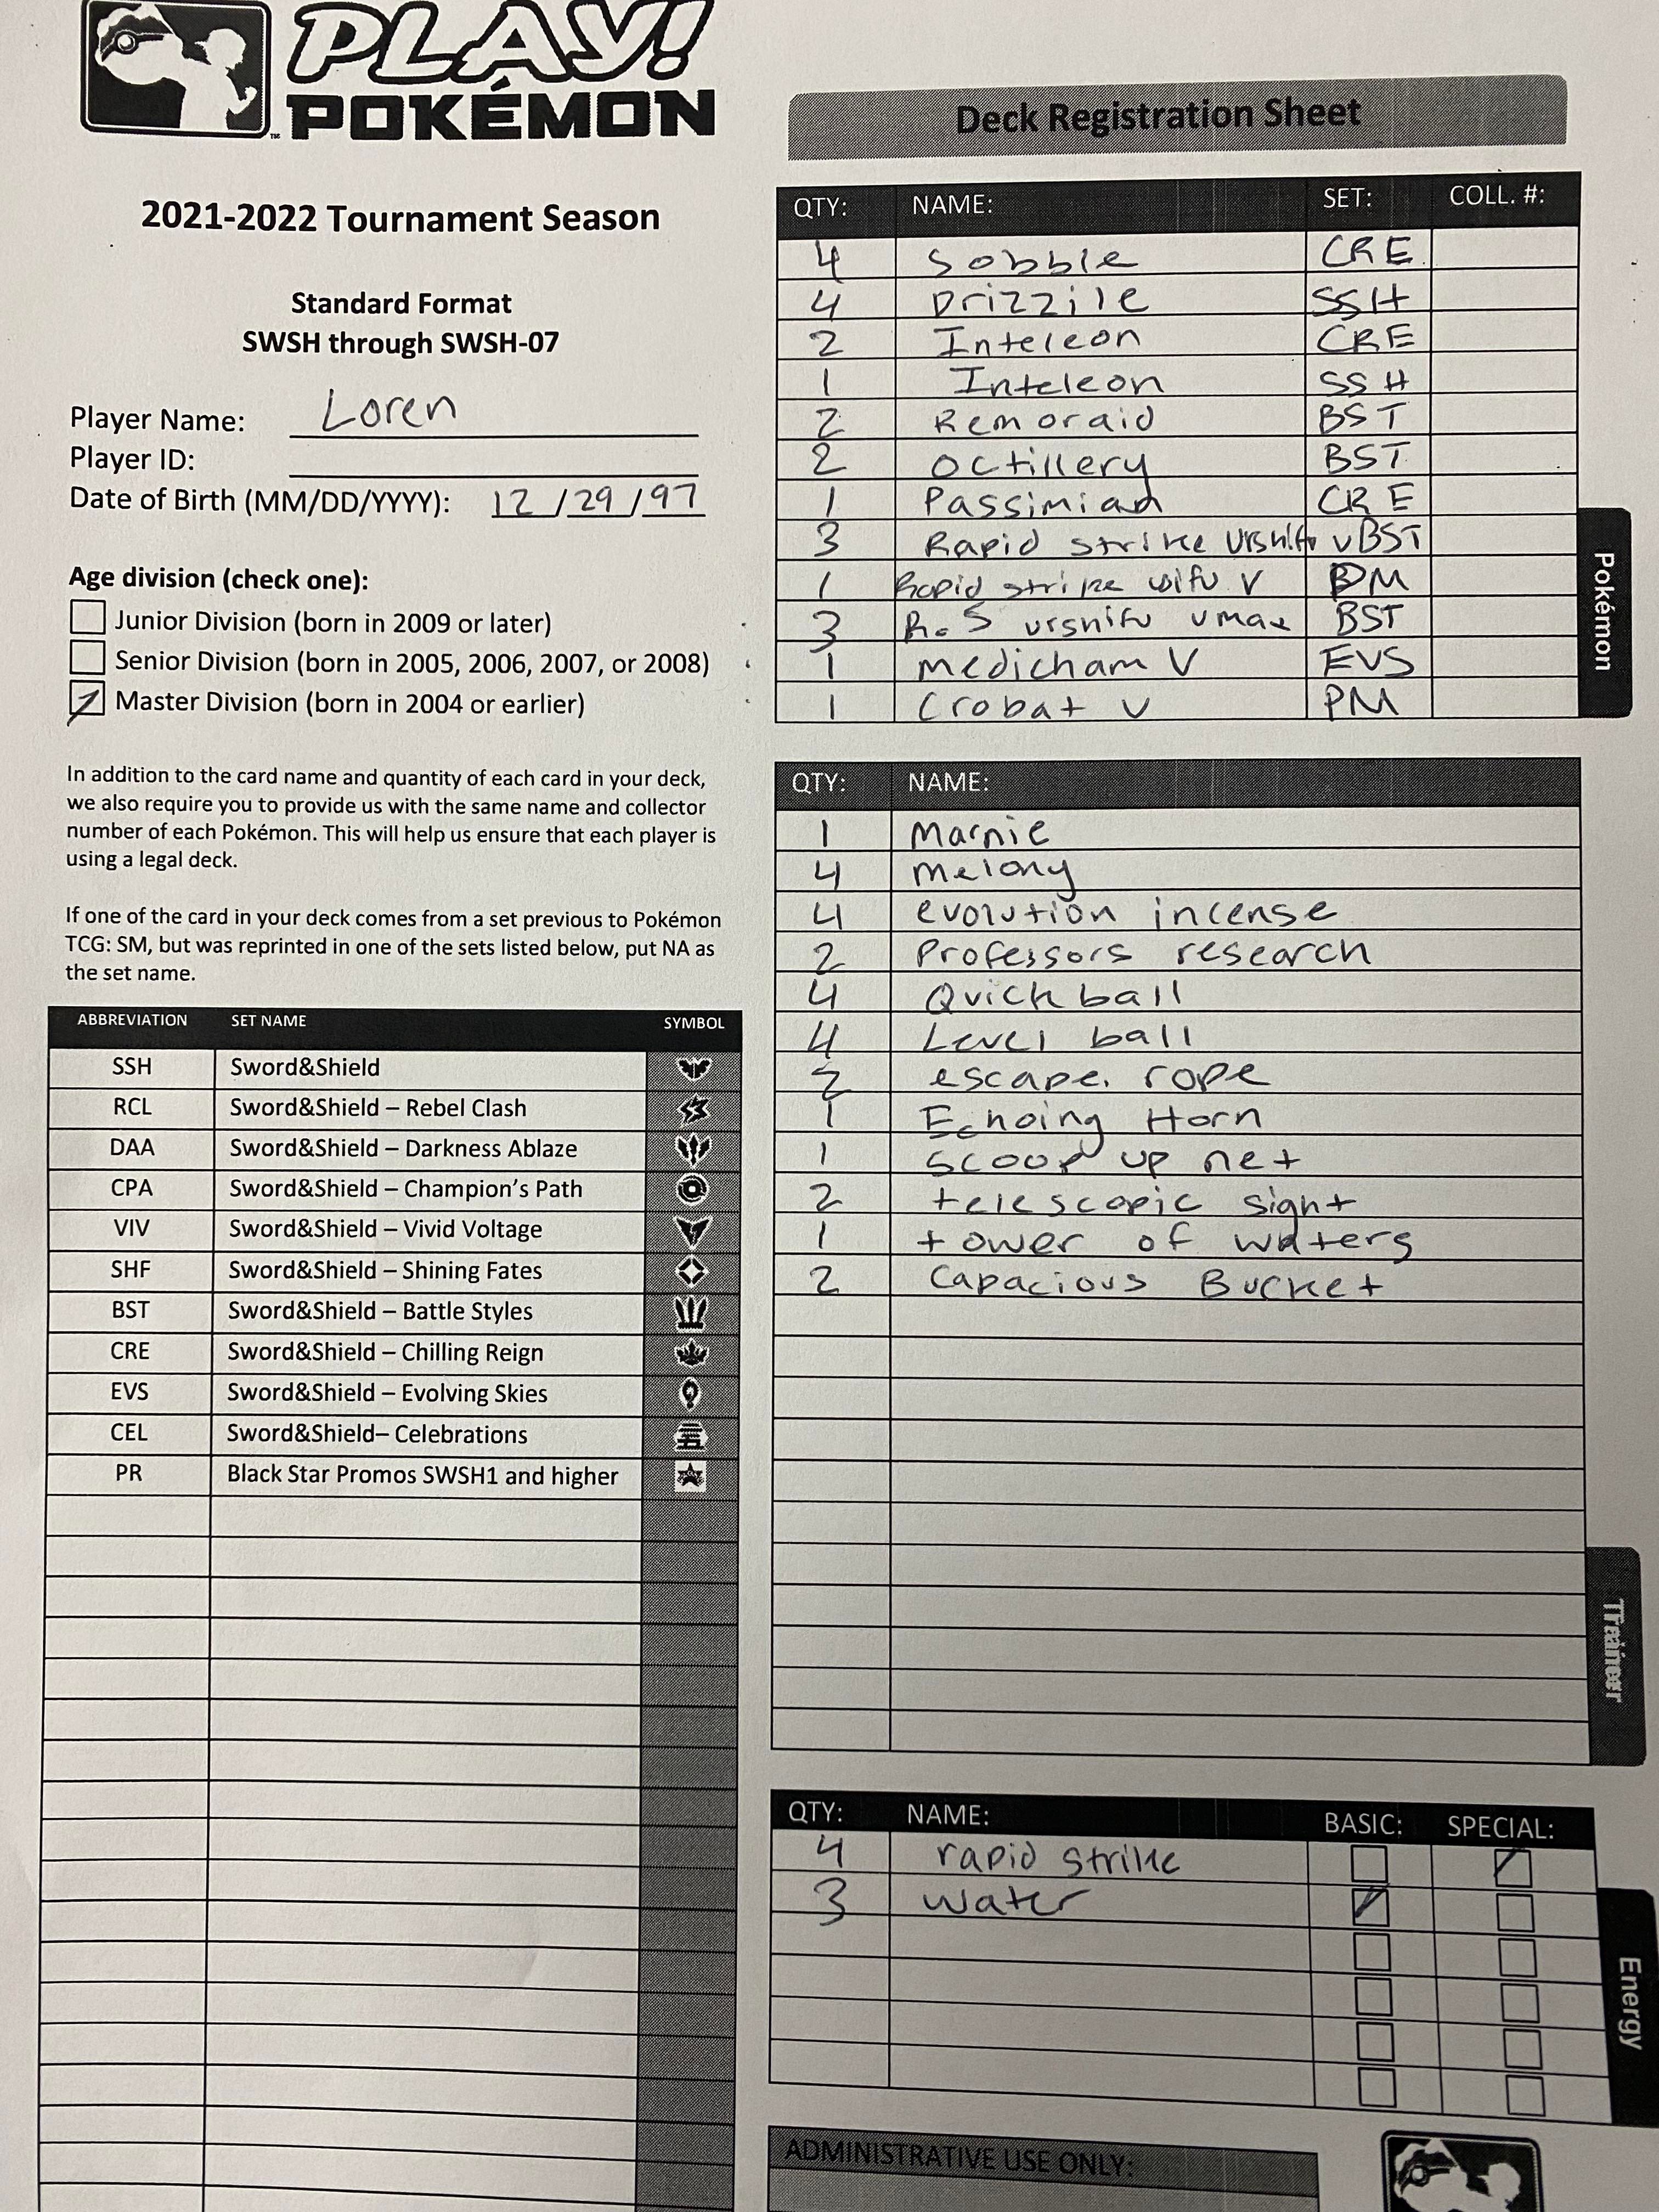 PLAY!
POKÉMON
TM
2021-2022 Tournament Season
Standard Format
SWSH through SWSH-07
Player Name: Loren
Player ID:
Date of Birth (MM/DD/YYYY): 12/29/97
Age division (check one):
Junior Division (born in 2009 or later)
Senior Division (born in 2005, 2006, 2007, or 2008)
Master Division (born in 2004 or earlier)
In addition to the card name and quantity of each card in your deck,
we also require you to provide us with the same name and collector
number of each Pokémon. This will help us ensure that each player is
using a legal deck.
If one of the card in your deck comes from a set previous to Pokémon
TCG: SM, but was reprinted in one of the sets listed below, put NA as
the set name.
ABBREVIATION SET NAME SYMBOL
SSH Sword&Shield
RCL Sword&Shield – Rebel Clash
DAA Sword&Shield – Darkness Ablaze
CPA Sword&Shield – Champion's Path
VIV Sword&Shield – Vivid Voltage
SHF Sword&Shield – Shining Fates
BST Sword&Shield – Battle Styles
CRE Sword&Shield – Chilling Reign
EVS Sword&Shield – Evolving Skies
CEL Sword&Shield– Celebrations
PR Black Star Promos SWSH1 and higher
Deck Registration Sheet
QTY: NAME: SET: COLL. #:
4 Sobble CRE
4 Drizzile SSH
2 Inteleon CRE
1 Inteleon SSH
2 Remoraid BST
2 Octillery BST
1 Passimian CRE
3 Rapid strike Urshifu V BST
1 Rapid strike V
3 R.S urshifu vmax BST
1 Medicham V EVS
1 Crobat V PM
Pokémon
QTY: NAME:
1 Marnie
4 Melony
4 evolution incense
2 Professors research
4 Quick ball
4 Level ball
2 escape rope
1 Echoing Horn
1 Scoop up net
2 telescopic sight
1 tower of waters
2 Capacious Bucket
Trainer
QTY: NAME: BASIC: SPECIAL:
4 rapid strike
3 water
Energy
ADMINISTRATIVE USE ONLY: